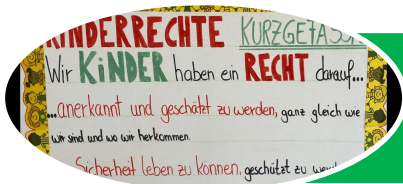 KINDERRECHTE KURZGEFASST
Wir KiNDER haben ein RECHT darauf...
...anerkannt und geschätzt zu werden, ganz gleich wie
wir sind und wo wir herkommen.
Sicherheit leben zu können, geschützt zu